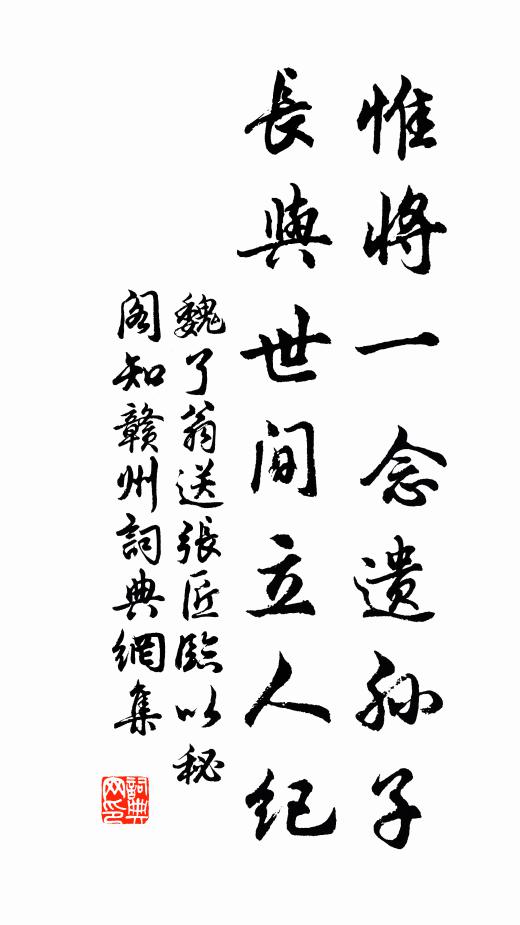 惟將一念遺孫子
長與世間立人紀
魏了翁送張匠監以秘
閣知贛州詞典網集
詞典网印